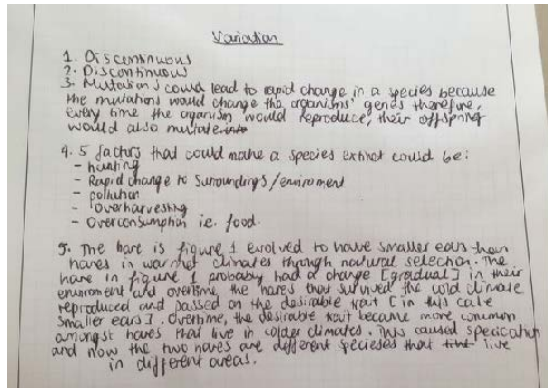 Variation
1. Discontinuous
2. Discontinuous
3. Mutations could lead to rapid change in a species because
the mutations would change the organisms' genes therefore,
every time the organism would reproduce, their offspring
would also mutate
4. 5 factors that could make a species extinct could be:
- hunting
- Rapid change to surroundings/enviroment
- pollution
- Overharvesting
- Overconsumption i.e. food.
5. The hare is figure 1 evolved to have smaller ears than
hares in warmer climates through natural selection. The
hare in figure 1 probably had a change [gradual] in their
enviroment and overtime, the hares that survived the cold climate
reproduced and passed on the desirable trait [in this case
smaller ears]. Overtime, the desirable trait became more common
amongst hares that live in colder climates. This caused speciation
and now the two hares are different specieses that live
in different areas.